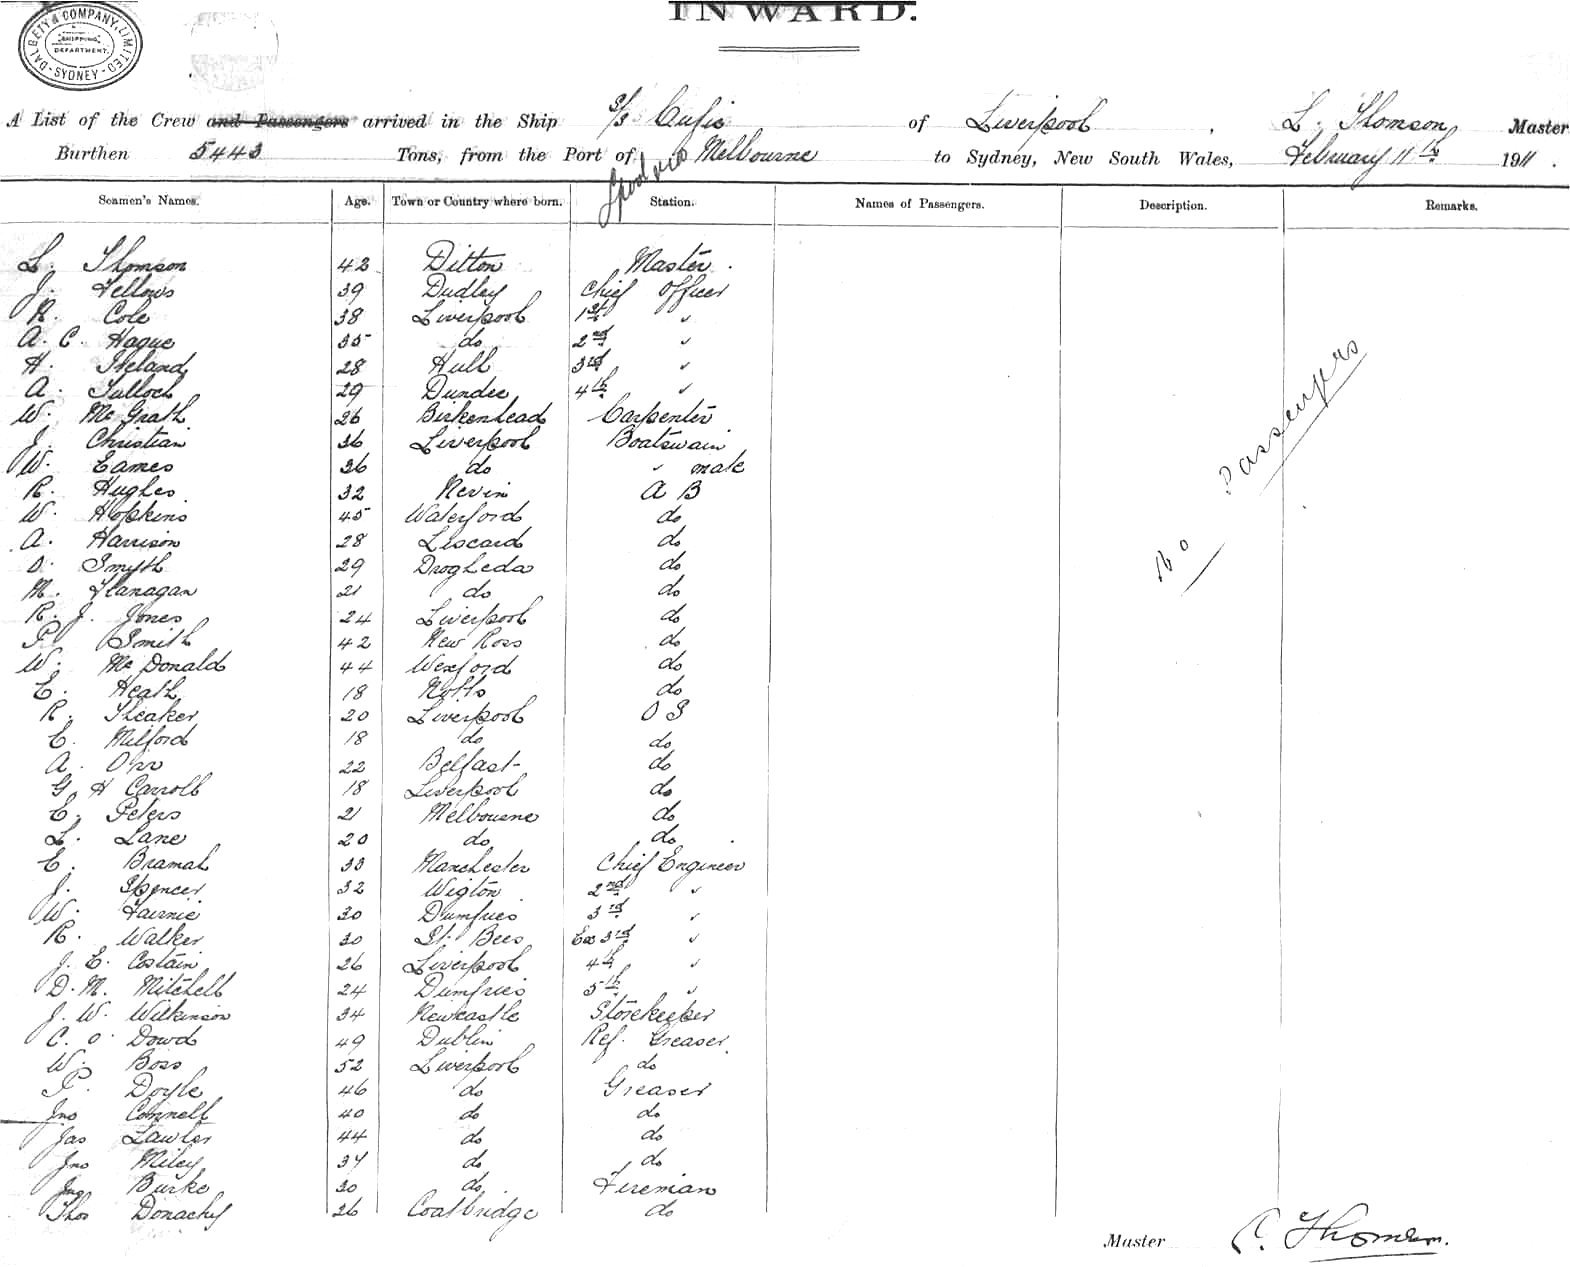 INWARD.
DALGETY & COMPANY, LIMITED
SHIPPING DEPARTMENT.
SYDNEY
A List of the Crew and Passengers arrived in the Ship S/S Cufic of Liverpool, L. Thomson Master
Burthen 5443 Tons, from the Port of Lpool via Melbourne to Sydney, New South Wales, February 11th 1911.
Seamen's Names. Age. Town or Country where born. Station. Names of Passengers. Description. Remarks.
L. Thomson 42 Ditton Master.
J. Fellows 39 Dudley Chief Officer
R. Cole 38 Liverpool 1st "
A. C. Hague 35 do 2nd "
H. Ireland 28 Hull 3rd "
A. Tulloch 29 Dundee 4th "
W. McGrath 26 Birkenhead Carpenter
J. Christian 36 Liverpool Boatswain
W. Eames 36 do " mate
R. Hughes 32 Nevin A B
W. Hopkins 45 Waterford do
A. Harrison 28 Liscard do
O. Smyth 29 Drogheda do
M. Flanagan 21 do do
R. J. Jones 24 Liverpool do
P. Smith 42 New Ross do
W. McDonald 44 Wexford do
E. Heath 18 Notts do
R. Sheaker 20 Liverpool O S
E. Milford 18 do do
A. Orr 22 Belfast do
G H Carroll 18 Liverpool do
E. Peters 21 Melbourne do
L. Lane 20 do do
E. Bramah 33 Manchester Chief Engineer
J. Spencer 32 Wigton 2nd "
W. Fairnie 30 Dumfries 3rd "
R. Walker 30 St. Bees Ex 3rd "
J. E. Costain 26 Liverpool 4th "
D. M. Mitchell 24 Dumfries 5th "
J. W. Wilkinson 34 Newcastle Storekeeper
C. O. Dowd 49 Dublin Ref. Greaser
W. Boss 52 Liverpool do
P. Doyle 46 do Greaser
Jno Connell 40 do do
Jas Lawler 44 do do
Jno Miley 34 do do
Jno Burke 30 do Fireman
Thos Donachy 26 Coatbridge do
No Passengers
Master L. Thomson.